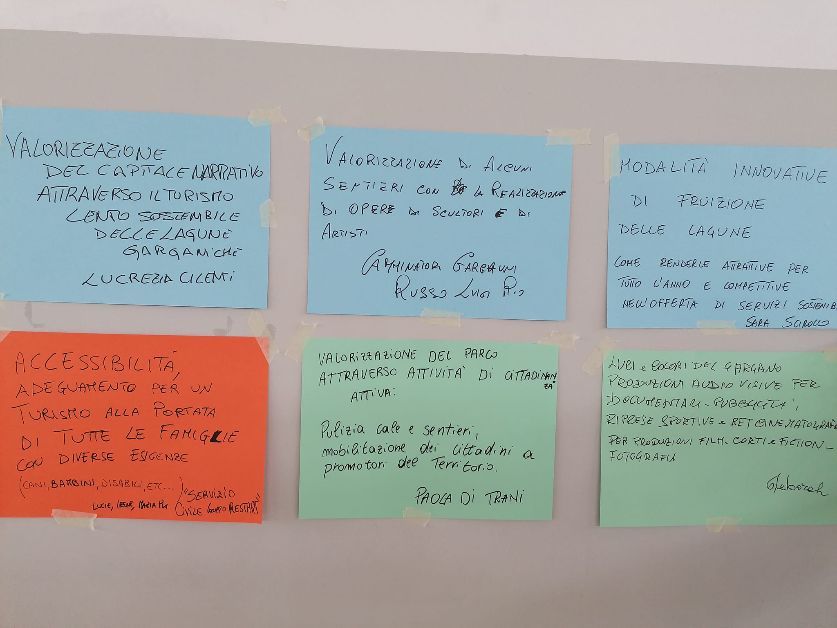 VALORIZZAZIONE
DEL CAPITALE NARRATIVO
ATTRAVERSO IL TURISMO
LENTO SOSTENIBILE
DELLE LAGUNE
GARGANICHE
LUCREZIA CILENTI
VALORIZZAZIONE DI ALCUNI
SENTIERI CON LA REALIZZAZIONE
DI OPERE DI SCULTORI E DI
ARTISTI
CAMMINATORI GARGANICI
RUSSO LUIGI PIO
MODALITÀ INNOVATIVE
DI FRUIZIONE
DELLE LAGUNE
COME RENDERLE ATTRATTIVE PER
TUTTO L'ANNO E COMPETITIVE
NELL'OFFERTA DI SERVIZI SOSTENIBI
SARA SCIROCCO
ACCESSIBILITÀ,
ADEGUAMENTO PER UN
TURISMO ALLA PORTATA
DI TUTTE LE FAMIGLIE
CON DIVERSE ESIGENZE
(CANI, BAMBINI, DISABILI, ETC...)
"SERVIZIO
CIVILE RESTART"
VALORIZZAZIONE DEL PARCO
ATTRAVERSO ATTIVITÀ DI CITTADINANZA
ATTIVA:
Pulizia cale e sentieri,
mobilitazione dei cittadini a
promotori del Territorio.
PAOLA DI TRANI
LUCI E COLORI DEL GARGANO
PRODUZIONI AUDIO VISIVE PER
DOCUMENTARI - PUBBLICITÀ,
RIPRESE SPORTIVE E RETI CINEMATOGRAFI
PER PRODUZIONI FILM CORTI E FICTION -
FOTOGRAFIA